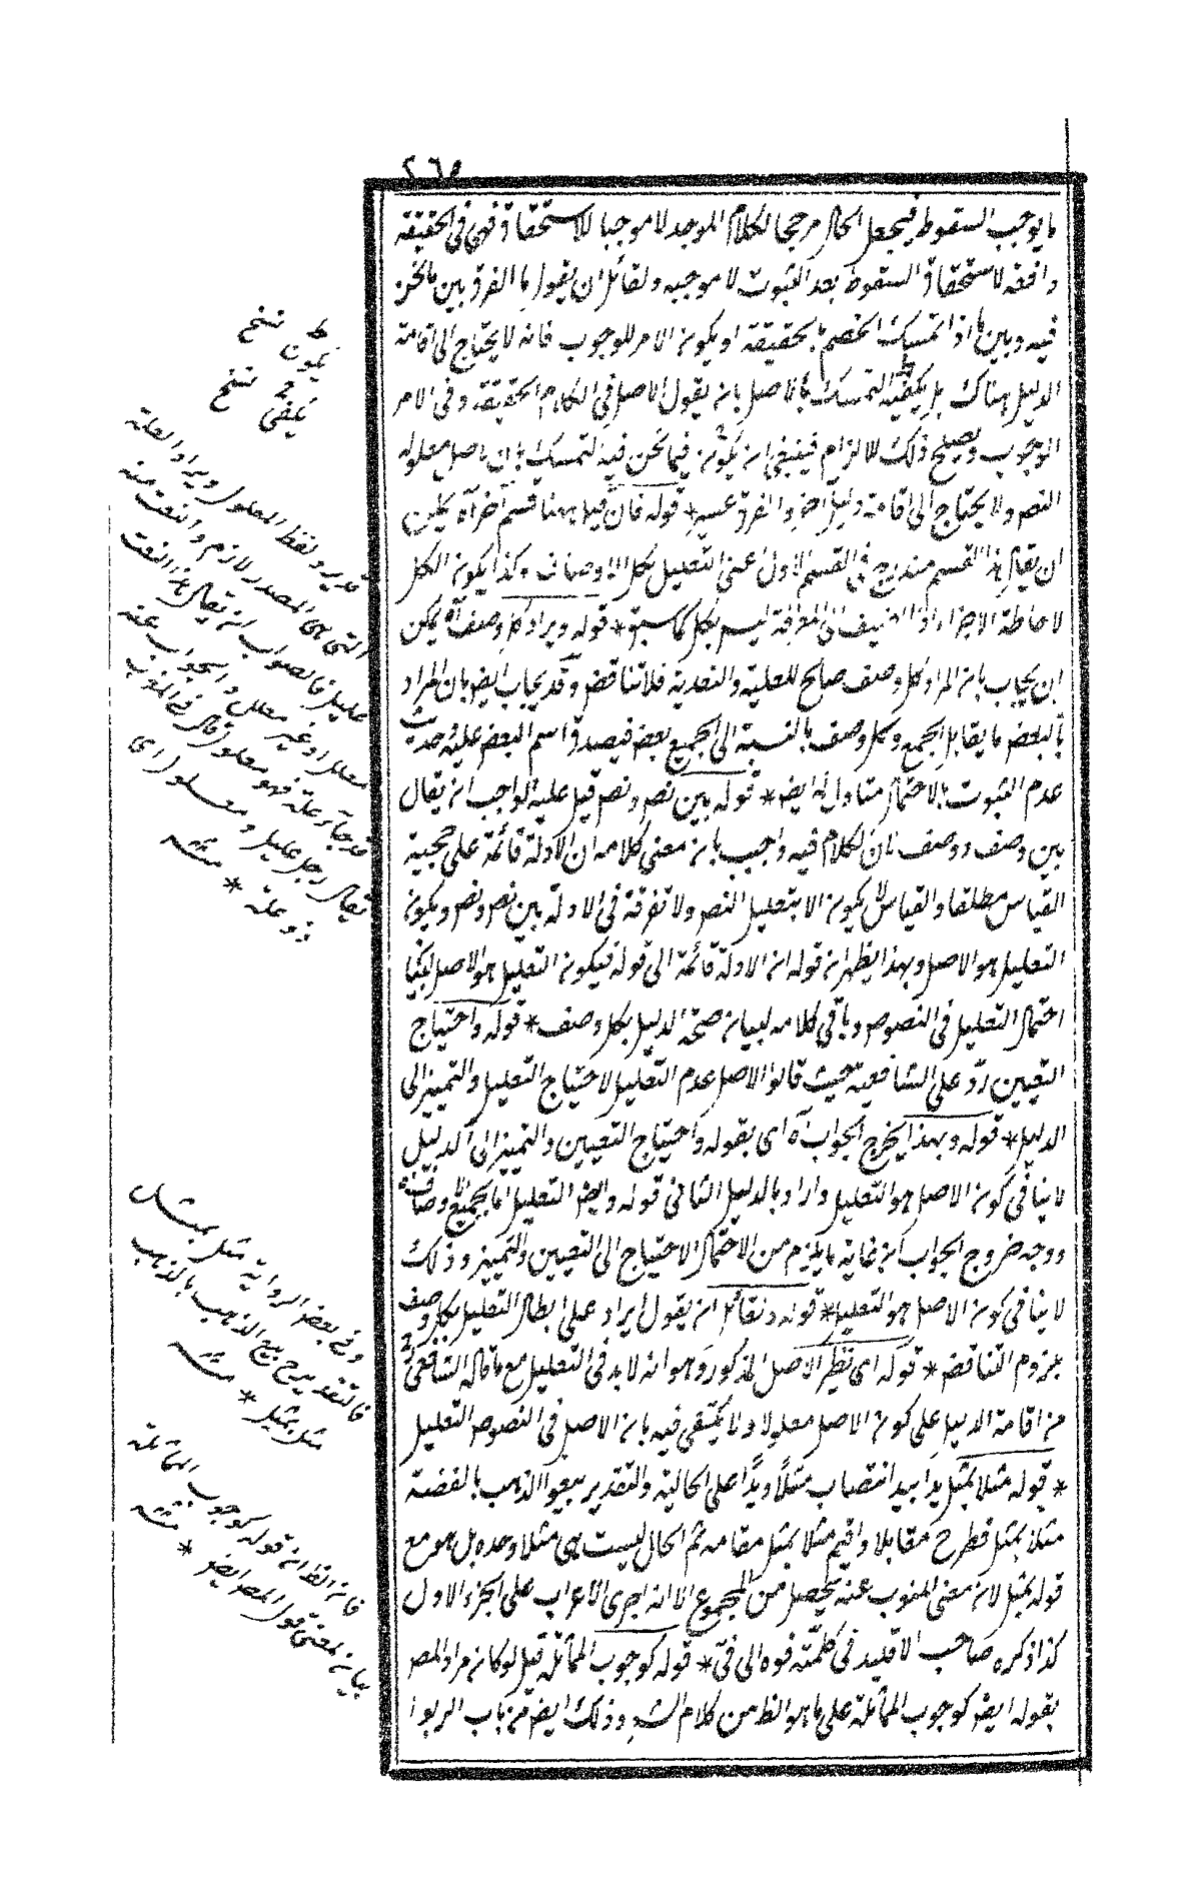 ٢٦٥
ما يوجب السقوط فيجعل الحال مرجحا لكلام الموجد لا موجبا للاستحقاق فهى فى الحقيقة
دافعة لاستحقاق السقوط بعد الثبوت لا موجبة ولقائل ان يقول ما الفرق بين ما نحن
فيه وبين ما اذا تمسك الخصم بالحقيقة او بكون الامر للوجوب فانه لا يحتاج الى اقامة
الدليل هناك بل يكفيه التمسك بالاصل بان يقول الاصل فى الكلام الحقيقة وفى الامر
الوجوب ويصلح ذلك للالزام فينبغى ان يكون فيما نحن فيه التمسك بان الاصل معلولية
النص ولا يحتاج الى اقامة دليل آخر والفرق عسير * قوله فان قيل ههنا قسم آخر آه يمكن
ان يقال هذا القسم مندرج فى القسم الاول اعنى التعليل بكل الاوصاف وكذا يكون الكل
لاحاطة الاجزاء اذا اضيف الى المعرفة ليس بكل كما سبق * قوله ويراد كل وصف آه يمكن
ان يجاب بان المراد كل وصف صالح للعلية والتعدية فلا تناقض وقد يجاب ايضا بان المراد
بالبعض ما يقابل الجميع وكل وصف بالنسبة الى الجميع بعض فيصدق اسم البعض عليه وحديث
عدم الثبوت بالاحتمال متناول له ايضا * قوله بين نص ونص قيل عليه الواجب ان يقال
بين وصف ووصف لان الكلام فيه واجيب بان معنى كلامه ان الادلة قائمة على حجية
القياس مطلقا والقياس لا يكون الا بتعليل النص ولا تفرقة فى الادلة بين نص ونص ويكون
التعليل هو الاصل وبهذا يظهر ان قوله ان الادلة قائمة الى قوله فيكون التعليل هو الاصل لبيان
احتمال التعليل فى النصوص وباقى كلامه لبيان صحة الدليل بكل وصف * قوله واحتياج
التعيين رد على الشافعية حيث قالوا الاصل عدم التعليل لاحتياج التعليل والتمييز الى
الدليل * قوله وبهذا يخرج الجواب آه اى بقوله واحتياج التعيين والتمييز الى الدليل
لا ينافى كون الاصل هو التعليل واراد بالدليل الثانى قوله وايضا التعليل اما بجميع الاوصاف
ووجه خروج الجواب ان غاية ما يلزم من الاحتمال الاحتياج الى التعيين والتمييز وذلك
لا ينافى كون الاصل هو التعليل * قوله ولقائل ان يقول يراد على ابطال التعليل بكل وصف
بلزوم التناقض * قوله اى نظير الاصل المذكور وهو انه لا بد فى التعليل مع ما قال الشافعى
من اقامة الدليل على كون الاصل معلولا ولا يكتفى فيه بان الاصل فى النصوص التعليل
* قوله مثلا بمثل يدا بيد انتصاب مثلا ويدا على الحالية والتقدير بيعوا الذهب بالفضة
مثلا بمثل فطرح مقابلا واقيم مثلا بمثل مقامه ثم الحال ليست هى مثلا وحده بل هو مع
قوله بمثل لان معنى المنوب عنه يحصل من المجموع الا انه اجرى الاعراب على الجزء الاول
كذا ذكره صاحب الاقليد فى كلمته فوه الى فى * قوله كوجوب المماثلة قيل لو كان مراد المص
بقوله ايضا كوجوب المماثلة على ما هو الظ من كلام الش وذلك ايضا من باب الربوا
يكون نسخ
يكفى نسخ
قدير ولفظ المعلول ويراد العلة
التى هى المصدر لازم والنعت منه
عليل فالصواب ان يقال
معلل او غير معلل والجواب عنه
قد جاء علة فهو معلول قال فى المغرب
يقال رجل عليل ومعلول اى
ذو علة * منه
وفى بعض الرواية مثل بمثل
فالتقدير بيع الذهب بالذهب
مثل بمثل * منه
فان الظ ان قوله كوجوب المماثلة
بيان لمعنى قول المص ايضا * منه